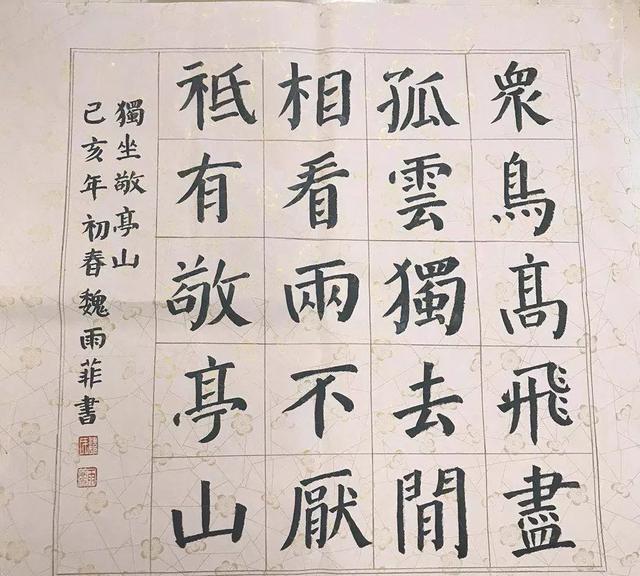 衆鳥髙飛盡
孤雲獨去閒
相看兩不厭
祗有敬亭山
獨坐敬亭山
己亥年初春魏雨菲書